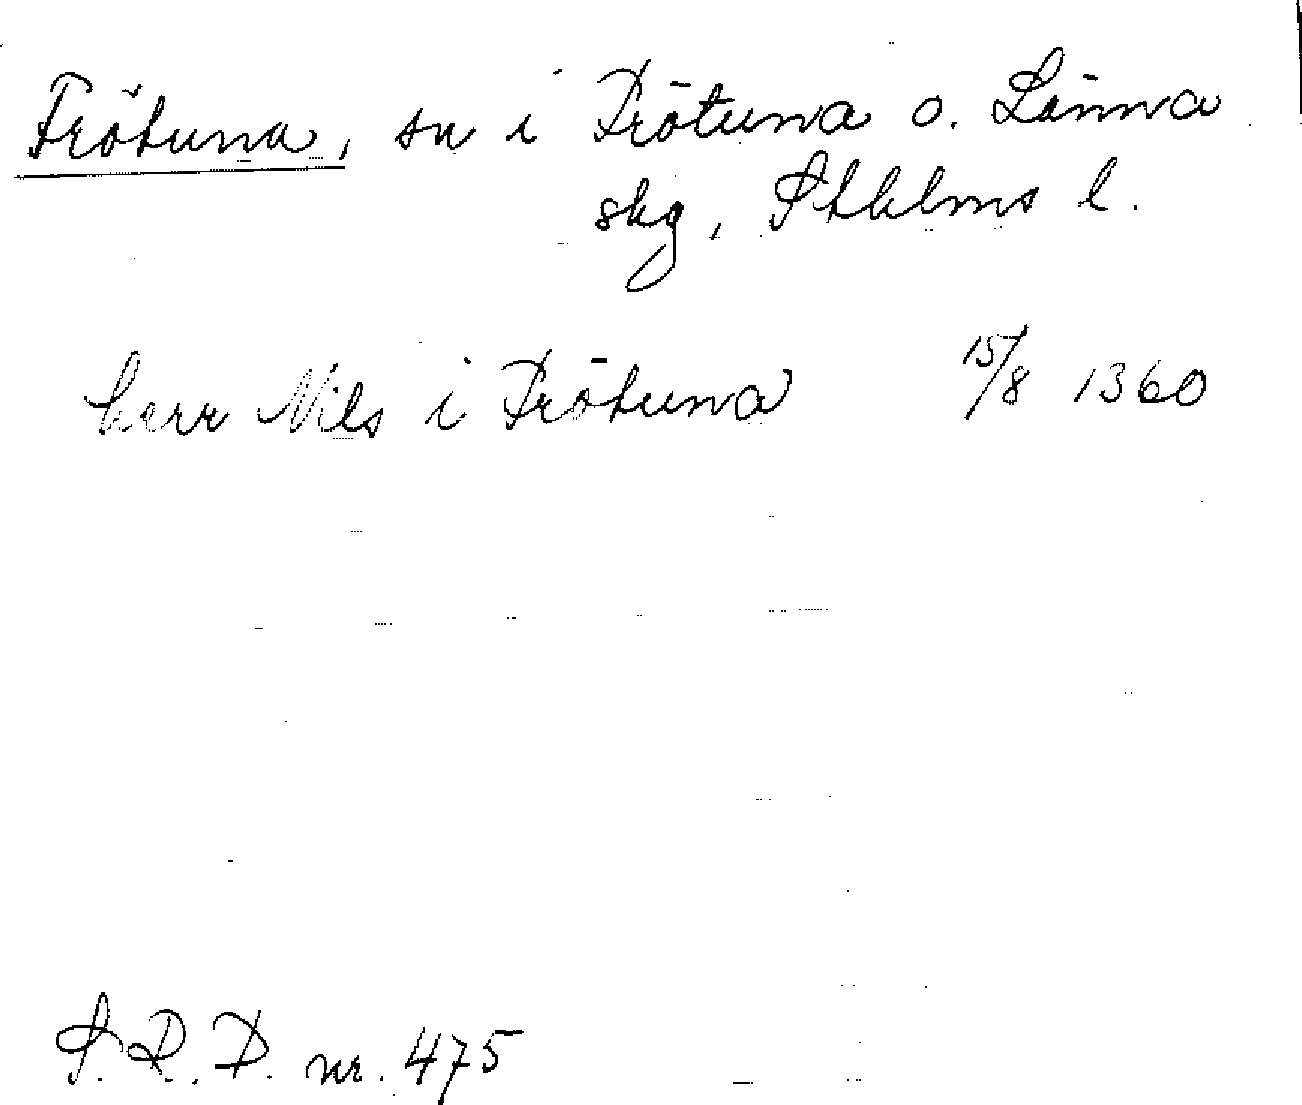 Frötuna, sn i Frötuna o. Länna
skg, Sthlms l.
herr Nils i Frötuna 15/8 1360
S.R.D. nr. 475